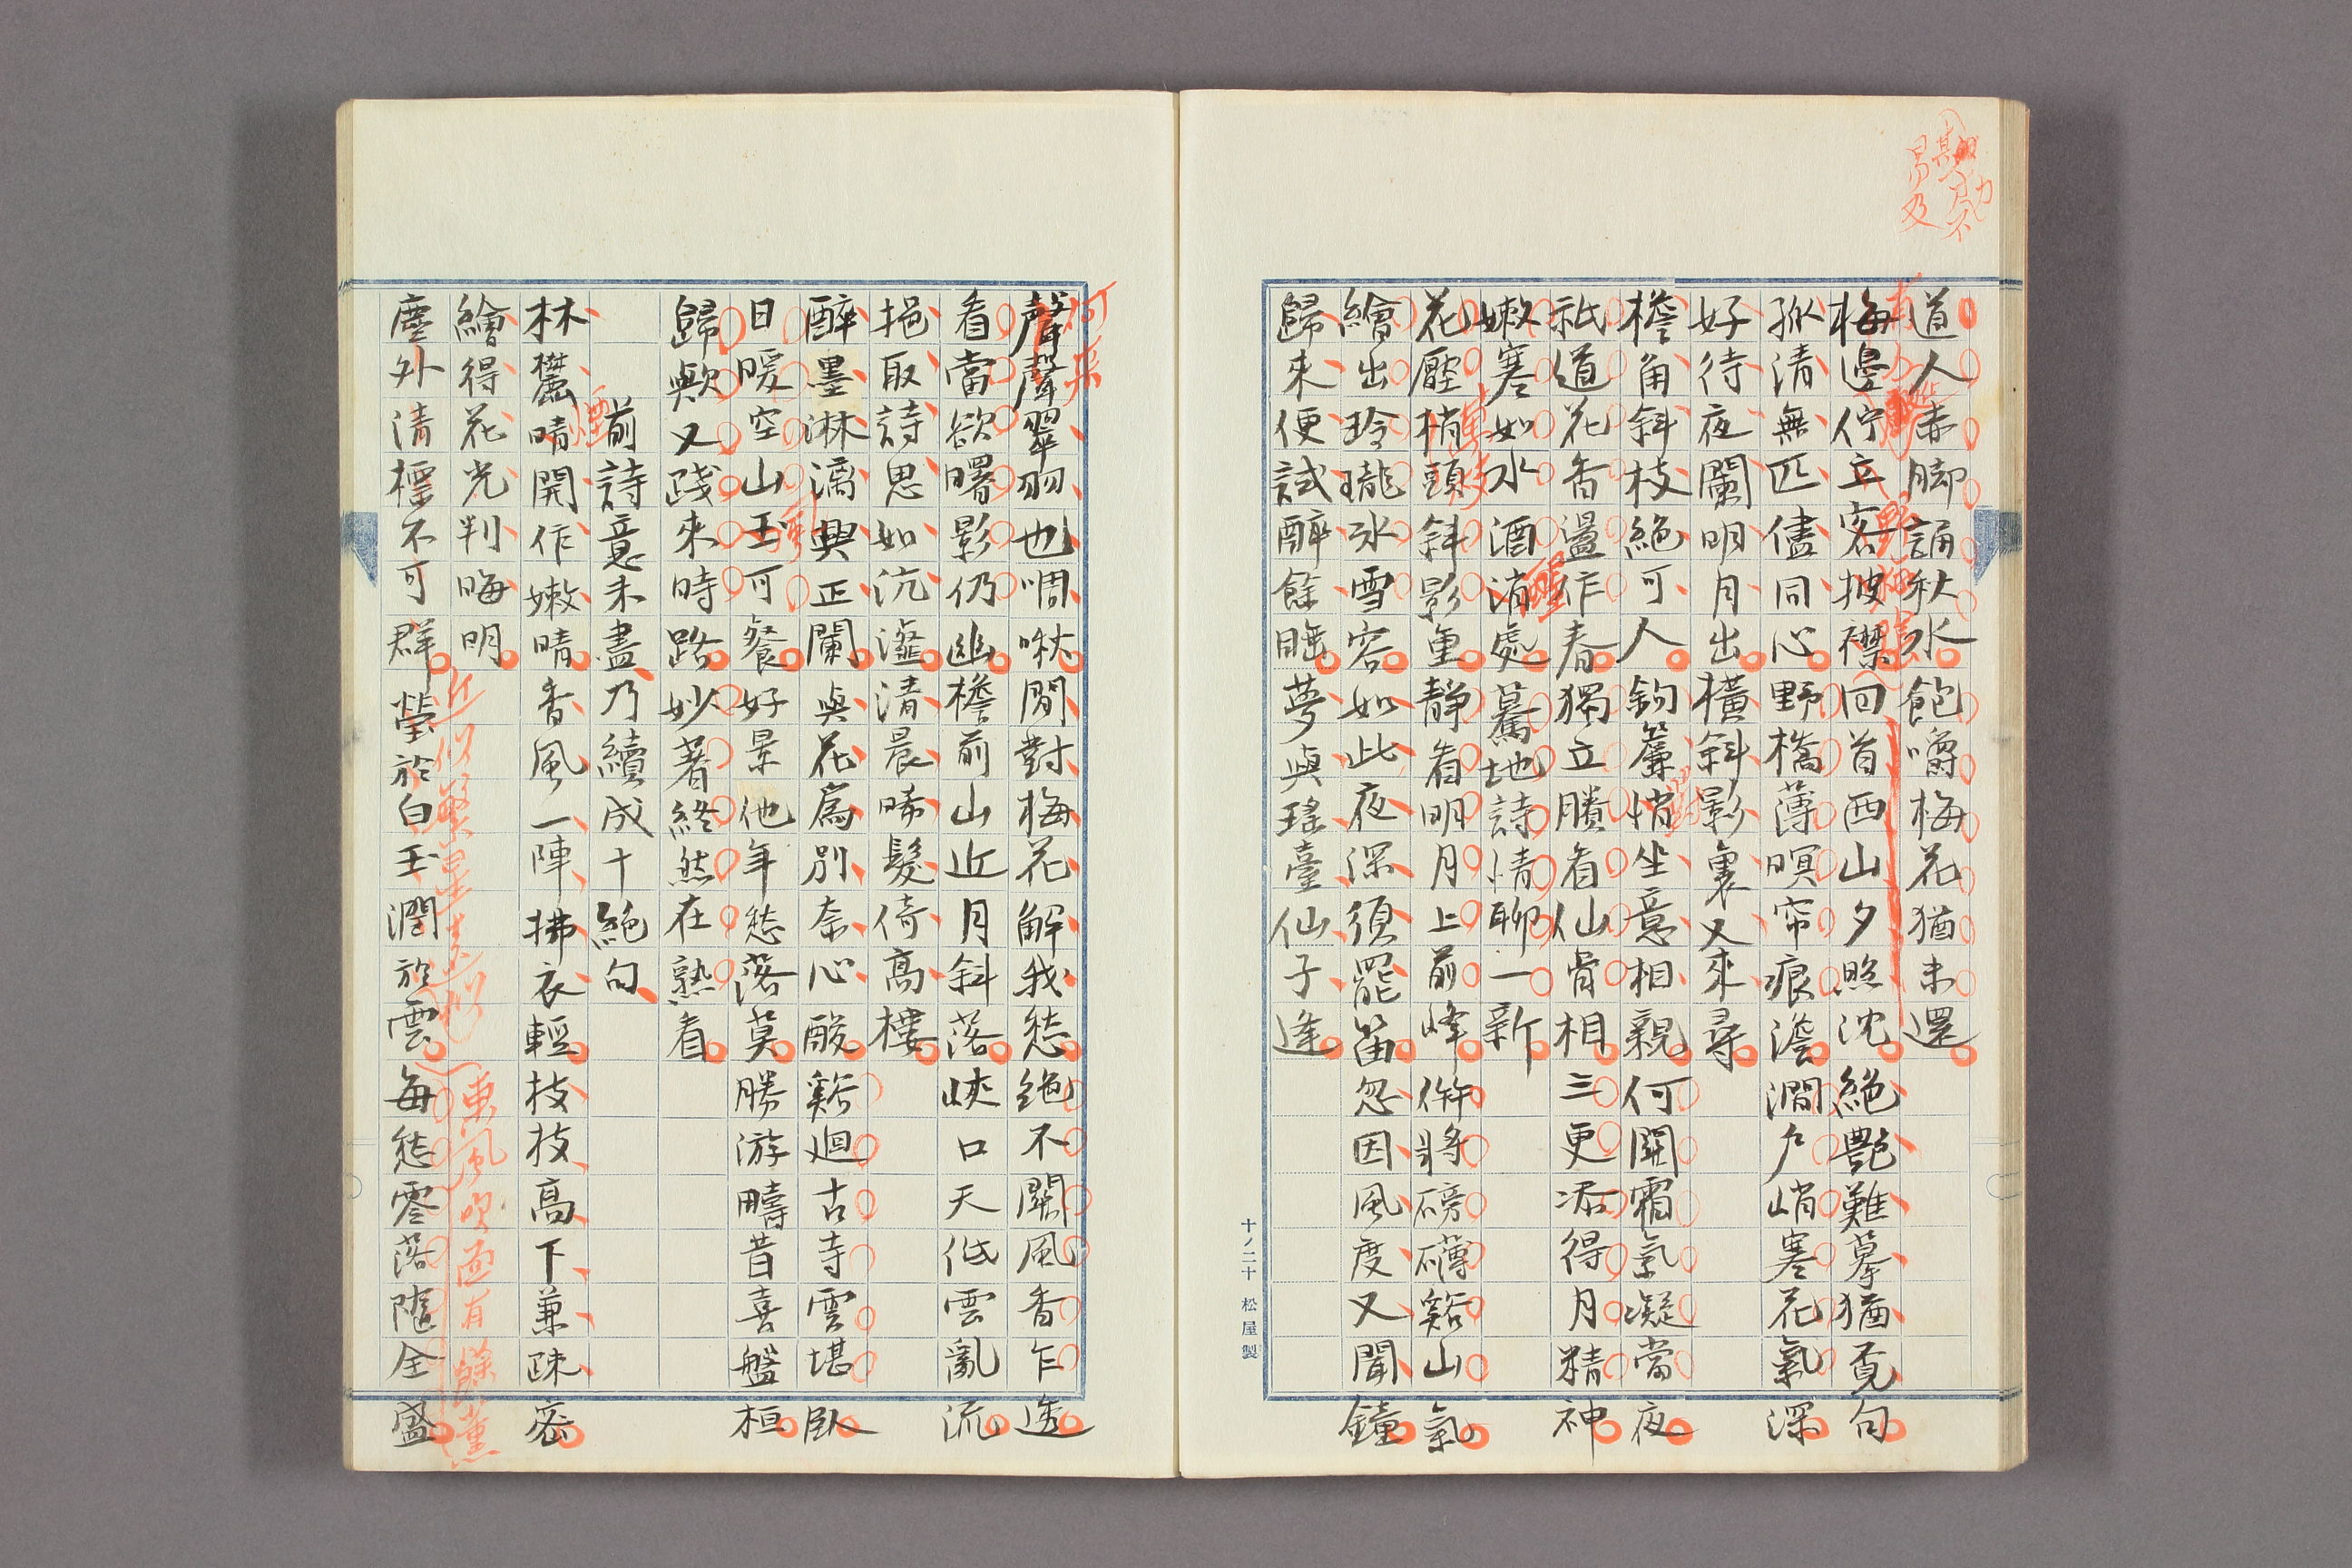 道人赤脚誦秋水飽嚼梅花猶未還
梅邊佇立客披襟回首西山夕照沈絕艷難摹猶覓句
孤清無匹儘同心野橋薄暝帘痕澹澗戶峭寒花氣深
好待夜闌明月出橫斜影裏又來尋
檐角斜枝絕可人鉤簾悄坐意相親何關霜氣凝當夜
祇道花香盪作春獨立賸看仙骨相三更添得月精神
嫩寒如水酒消處驀地詩情聊一新
花壓梢頭斜影重靜看明月上前峰併將磅礴谿山氣
繪出玲瓏冰雪容如此夜深須罷笛忽因風度又聞鐘
歸來便試醉餘睡夢與瑤臺仙子逢
十ノ二十 松屋製
可采
聲聲翠羽也啁啾閒對梅花解我愁絕不關風香乍透
看當欲曙影仍幽檐前山近月斜落峽口天低雲亂流
挹取詩思如沆瀣清晨晞髮倚高樓
醉墨淋漓興正闌與花爲別奈心酸谿迴古寺雲堪臥
日暖空山玉可餐好景他年愁落莫勝游疇昔喜盤桓
歸歟又踐來時路妙著終然在熟看
前詩意未盡乃續成十絕句
林麓晴開作嫩晴香風一陣拂衣輕枝枝高下兼疎密
繪得花光判晦明
東風吹面有餘薰
塵外清標不可群瑩於白玉潤於雲每愁零落隨全盛